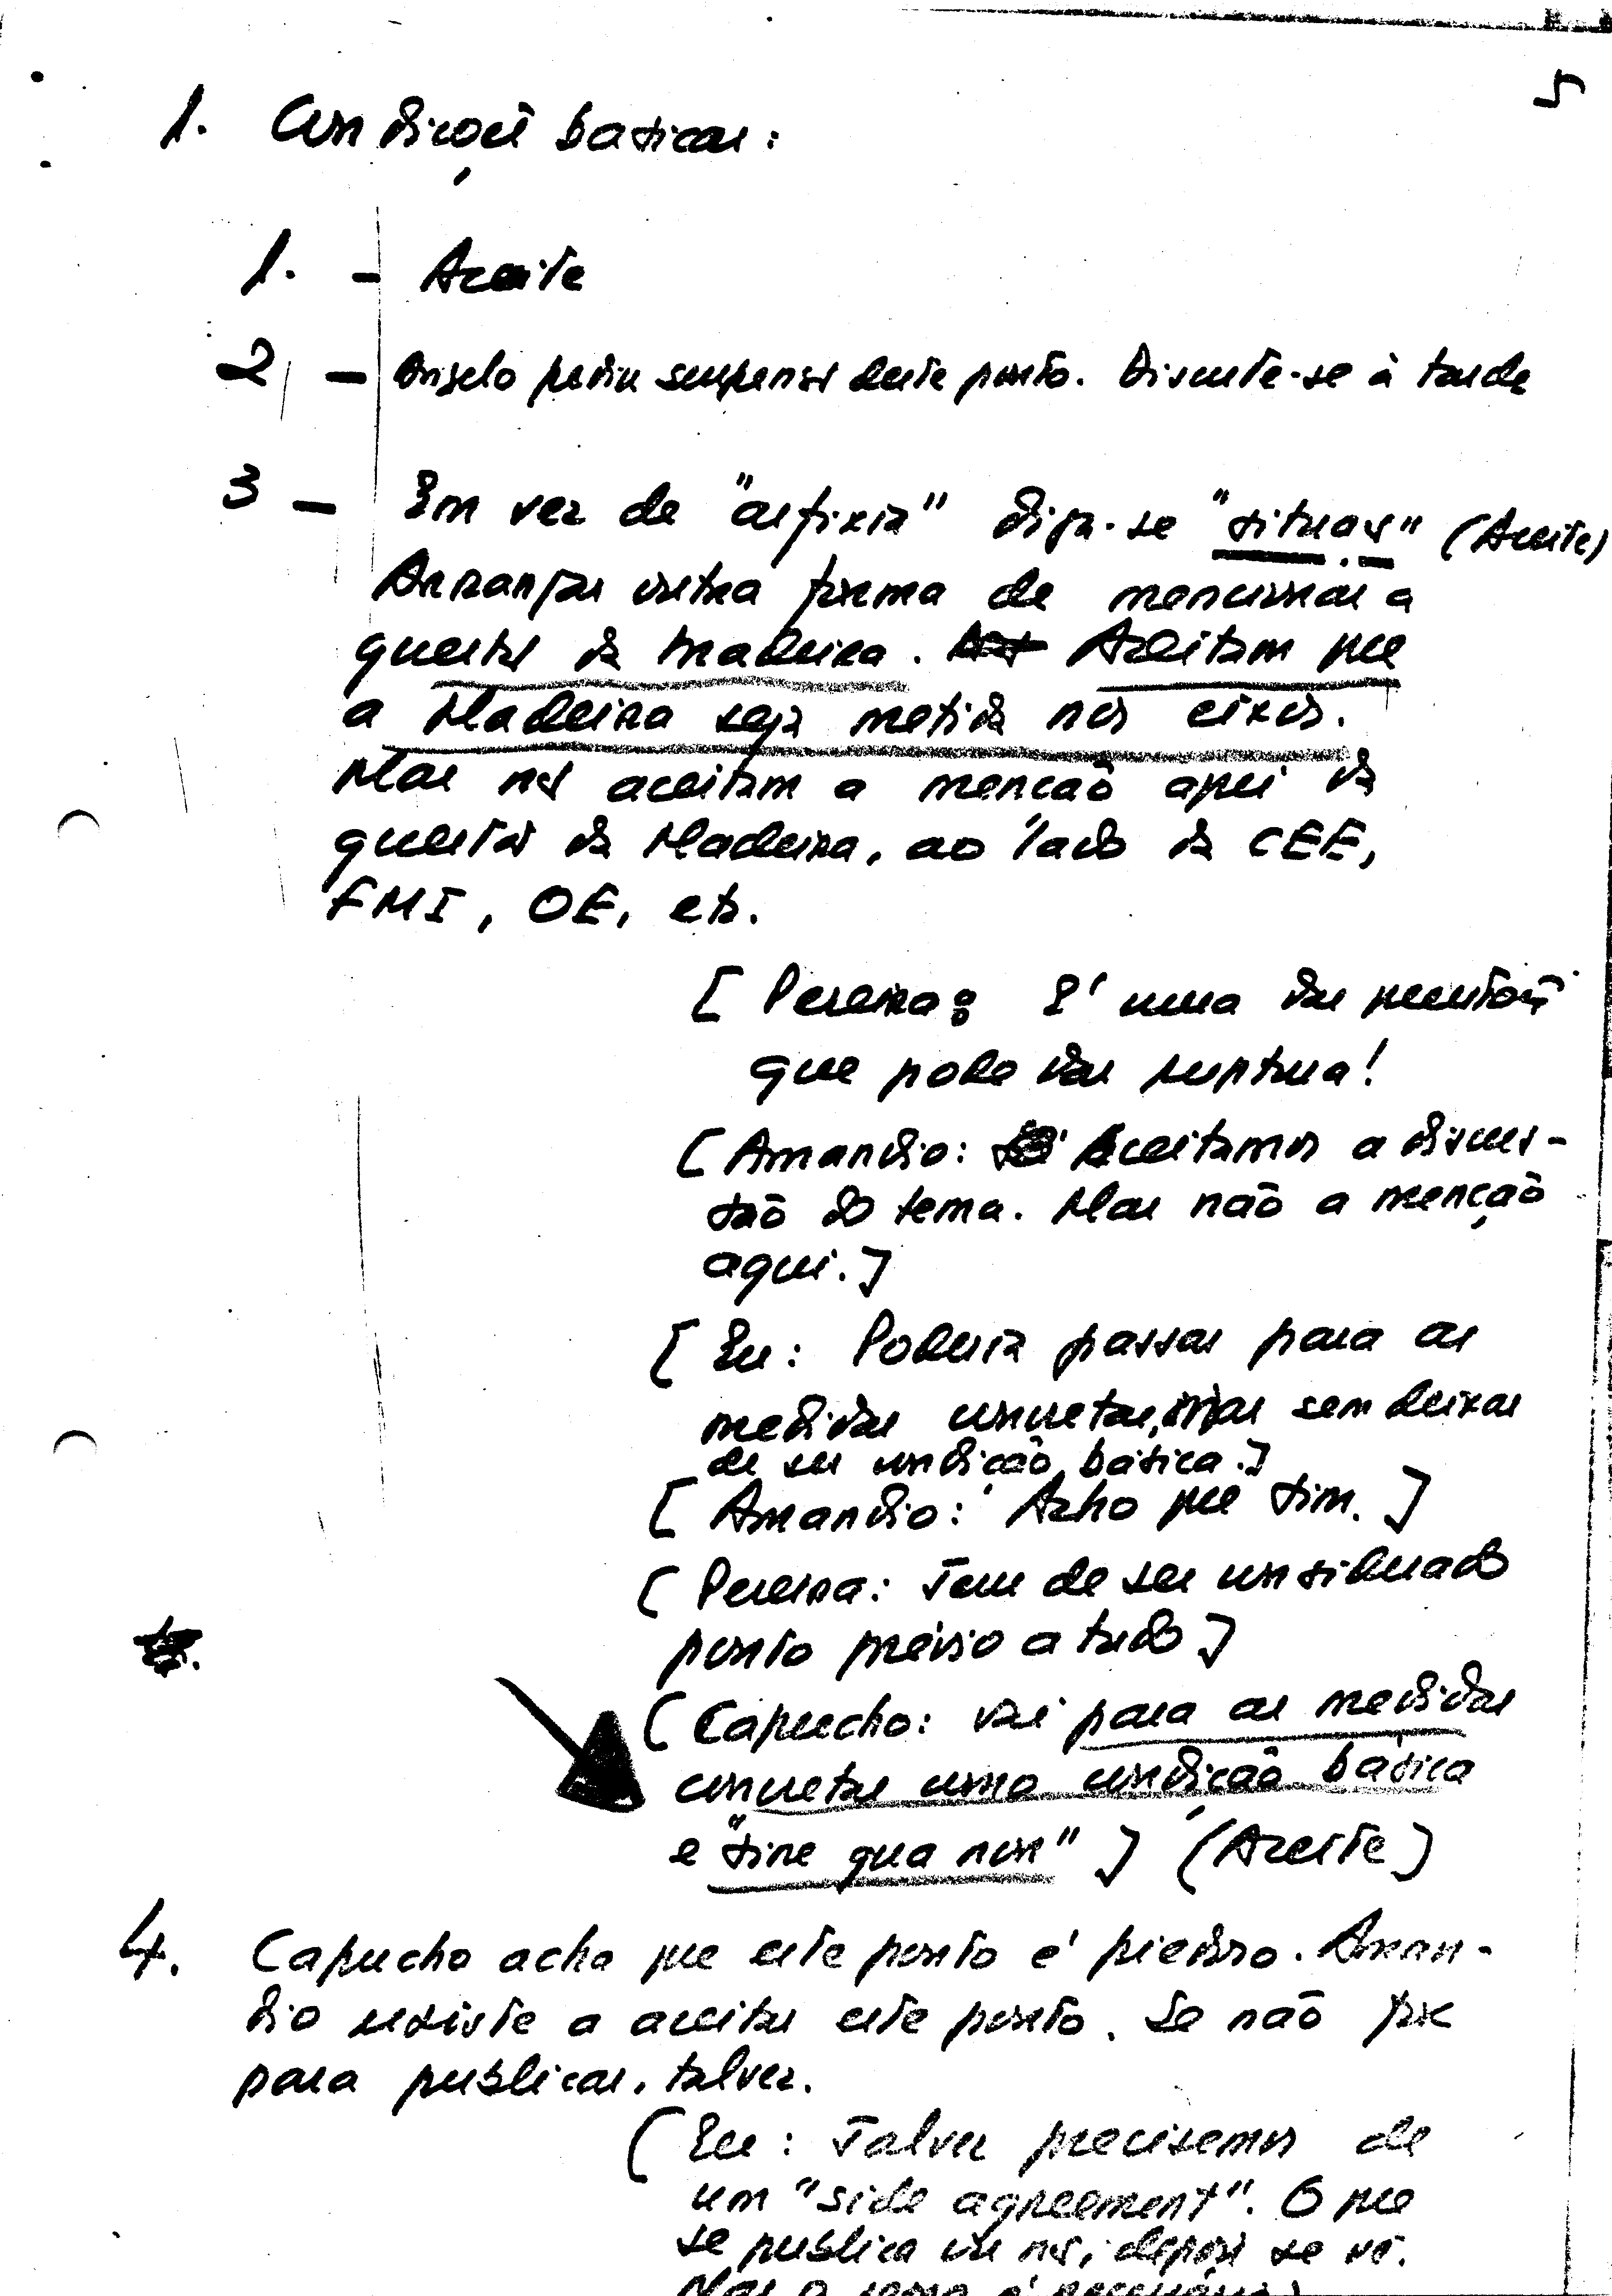 5
1. Condições básicas:
1. - Aceite
2 - Angelo pediu suspensão deste ponto. Discute-se à tarde
3 - Em vez de "asfixia" diga-se "situação" (Aceite)
Arranjar outra forma de mencionar a
questão da Madeira. Aceitam que
a Madeira seja metida nos eixos.
Mas não aceitam a menção aqui da
questão da Madeira, ao lado da CEE,
FMI, OE, etc.
[Pereira: É uma das questões
que pode dar ruptura!
[Amandio: Aceitamos a discus-
são do tema. Mas não a menção
aqui.]
[Eu: Poderia passar para as
medidas concretas, mas sem deixar
de ser condição básica.]
[Amandio: Acho que sim.]
[Pereira: Tem de ser considerado
ponto prévio a tudo]
[Capucho: Vai para as medidas
concretas como condição básica
e "sine qua non"] (Aceite)
4. Capucho acha que este ponto é piedoso. Aman-
dio resiste a aceitar este ponto. Se não for
para publicar, talvez.
(Eu: Talvez precisemos de
um "side agreement". O que
se publica ou não, depois se vê.
Mas o tema é necessário)